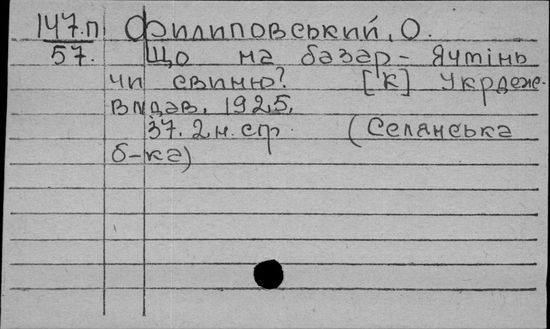 147.п Филиповський, О.
57. Що на базар - Ячмінь
чи свиню? [К] Укрдерж.
видав. 1925.
37. 2 н. стр. (Селянська
б-ка)